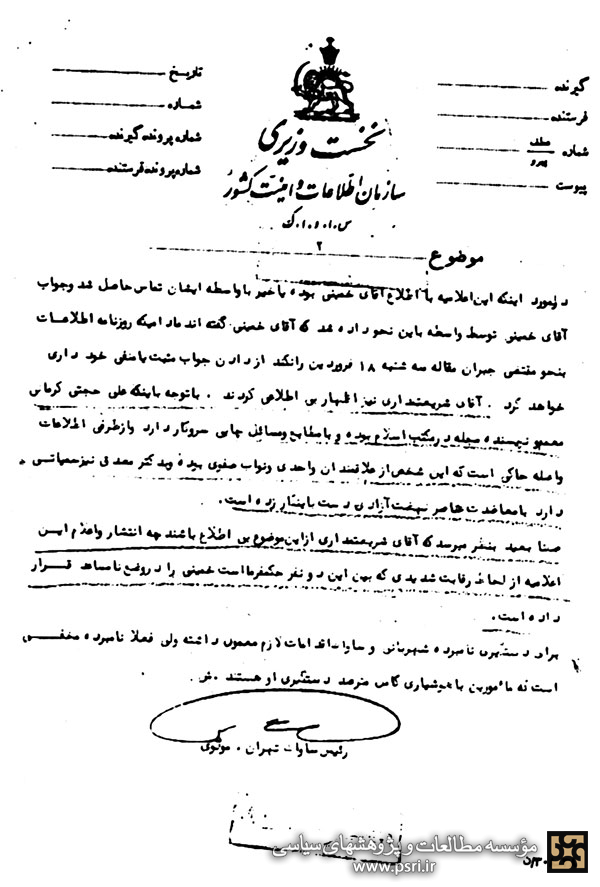 گیرنده
فرستنده
شماره
پیوست
تاریخ
شماره
شماره پرونده گیرنده
شماره پرونده فرستنده
نخست وزیری
سازمان اطلاعات و امنیت کشور
س.ا.و.ا.ک
۲
موضوع
در مورد اینکه این اعلامیه با اطلاع آقای خمینی بوده یا خیر با واسطه ایشان تماس حاصل شد و جواب
آقای خمینی توسط واسطه باین نحو داده شد که آقای خمینی گفته اند مادامیکه روزنامه اطلاعات
بنحو مقتضی جبران مقاله سه شنبه ۱۸ فروردین را نکند از دادن جواب مثبت یا منفی خود داری
خواهد کرد . آقای شریعتمداری نیز اظهار بی اطلاعی کردند . با توجه باینکه علی حجتی کرمانی
نویسنده مجله در مکتب اسلام بوده و با مطابع و مسائل چاپی سروکار دارد و از طرفی اطلاعات
واصله حاکی است که این شخص از علاقمندان واحدی و نواب صفوی بوده و بدکتر مصدق نیز سمپاتی
دارد با معاضدت عناصر نهضت آزادی دست باینکار زده است .
ضمنا بعید بنظر میرسد که آقای شریعتمداری از این موضوع بی اطلاع باشند چه انتشار و اعلام این
اعلامیه از لحاظ رقابت شدیدی که بین این دو نفر حکمفرما است خمینی را در وضع نامساعد قرار
داده است .
برای دستگیری نامبرده شهربانی و ساواک اقدامات لازم معمول داشته ولی فعلا نامبرده مخفی
است که مامورین با هوشیاری کامل مترصد دستگیری او هستند . ش
رئیس ساواک تهران . مولوی
مؤسسه مطالعات و پژوهشهای سیاسی
www.psri.ir